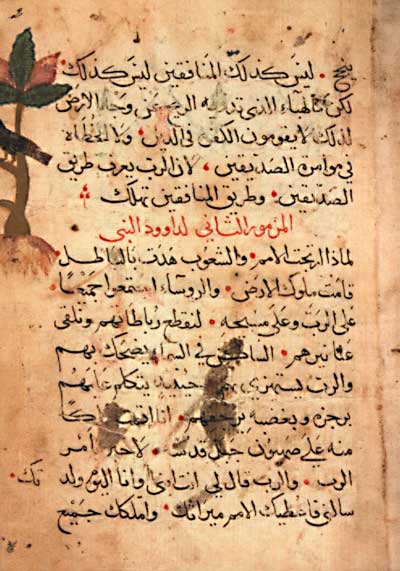 ينجح • ليس كذلك المنافقين ليس كذلك
لكن كالهباء الذي تذريه الريح عن وجه الارض
لذلك لا يقومون الكفرة في الدين • ولا الخطاه
في موامرة الصديقين • لان الرب يعرف طريق
الصديقين • وطريق المنافقين تهلك
المزمور الثاني لداوود النبي
لماذا ارتجت الامم • والشعوب هذت بالباطل
قامت ملوك الارض • والروساء استمعوا جميعًا
على الرب وعلى مسيحه • لنقطع رباطاتهم ونلقي
عنا نيرهم • الساكن في السماء يضحك بهم
والرب يستهزي بهم حينيذ يتكلم عليهم
برجزه وبغضبه يرجفهم • انا اقمت
منه على صهيون جبل قدسه • لاخبر امر
الرب • الرب قال لي انت ابني وانا اليوم ولد تك •
سلني فاعطيك الامم ميراثك • واملكك جميع